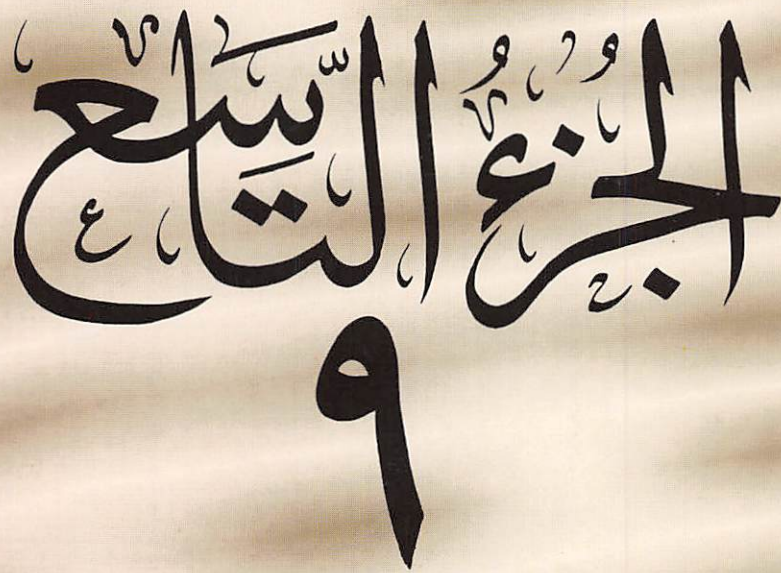 الجُزءُ التَّاسِع
٩